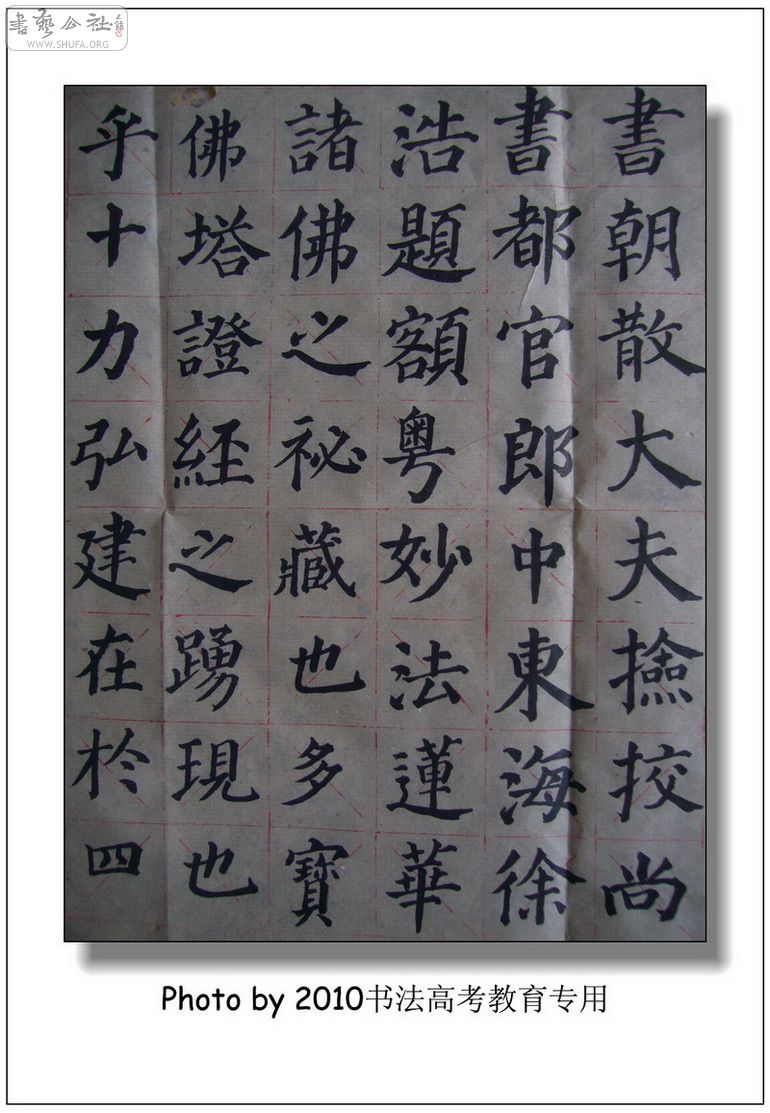 書藝公社
WWW.SHUFA.ORG
書朝散大夫撿挍尚
書都官郎中東海徐
浩題額粤妙法蓮華
諸佛之祕藏也多寶
佛塔證經之踴現也
乎十力弘建在於四
Photo by 2010书法高考教育专用